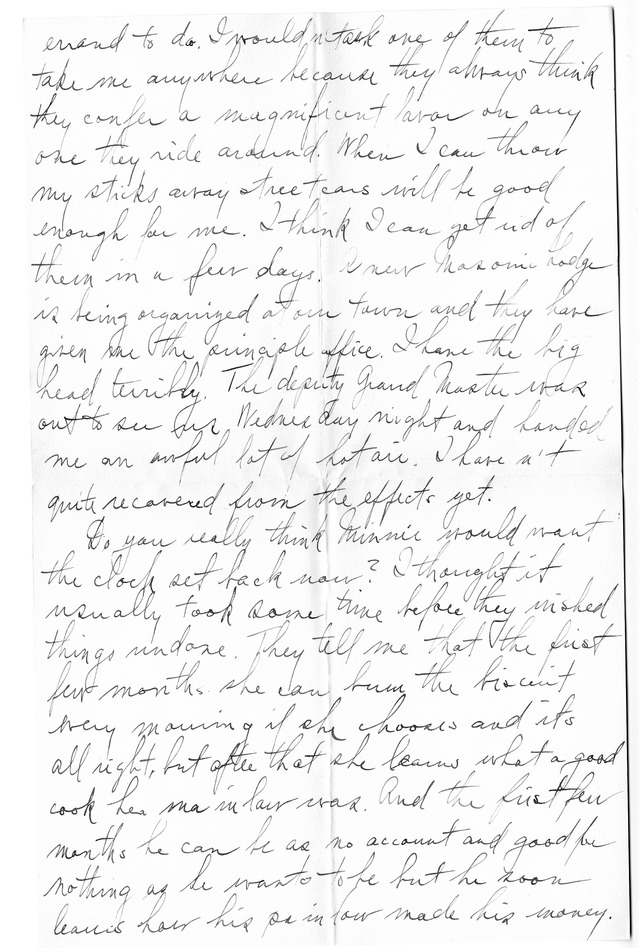 errand to do. I wouldn't ask one of them to
take me anywhere because they always think
they confer a magnificent favor on any
one they ride around. When I can throw
my sticks away street cars will be good
enough for me. I think I can get rid of
them in a few days. A new Masonic Lodge
is being organized at our town and they have
given me the principle office. I have the big
head terribly. The deputy Grand Master was
out to see us Wednesday night and handed
me an awful lot of hot air. I have n't
quite recovered from the effects yet.
Do you really think Minnie would want
the clock set back now? I thought it
usually took some time before they wished
things undone. They tell me that the first
few months she can burn the biscuit
every morning if she chooses and it's
all right, but after that she learns what a good
cook her ma in law was. And the first few
months he can be as no account and good for
nothing as he wants to be but he soon
learns how his pa in law made his money.